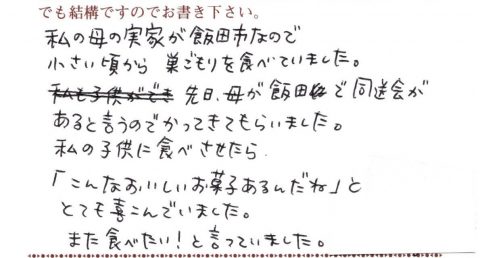 でも結構ですのでお書き下さい。
私の母の実家が飯田市なので
小さい頃から 巣ごもりを食べていました。
私も子供ができ 先日、母が飯田で同送会が
あると言うのでかってきてもらいました。
私の子供に食べさせたら
「こんなおいしいお菓子あるんだね」と
とても喜こんでいました。
また食べたい!と言っていました。